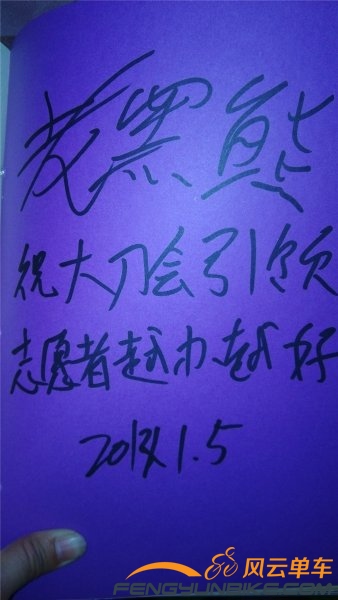 老黑熊
祝大刀会引领
志愿者越办越好
2014.1.5
风云单车
FENGYUNBIKE.COM